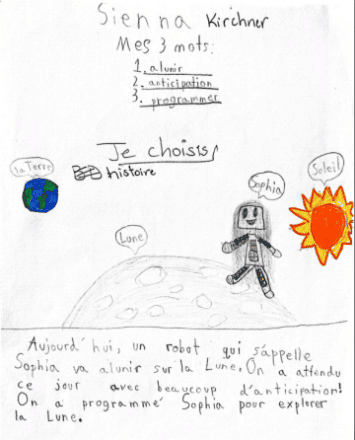 Sienna Kirchner
Mes 3 mots:
1. alunir
2. anticipation
3. programmer
Je choisis
histoire
la Terre
Sophia
Soleil
Lune
Aujourd'hui, un robot qui s'appelle
Sophia va alunir sur la Lune. On a attendu
ce jour avec beaucoup d'anticipation!
On a programmé Sophia pour explorer
la Lune.